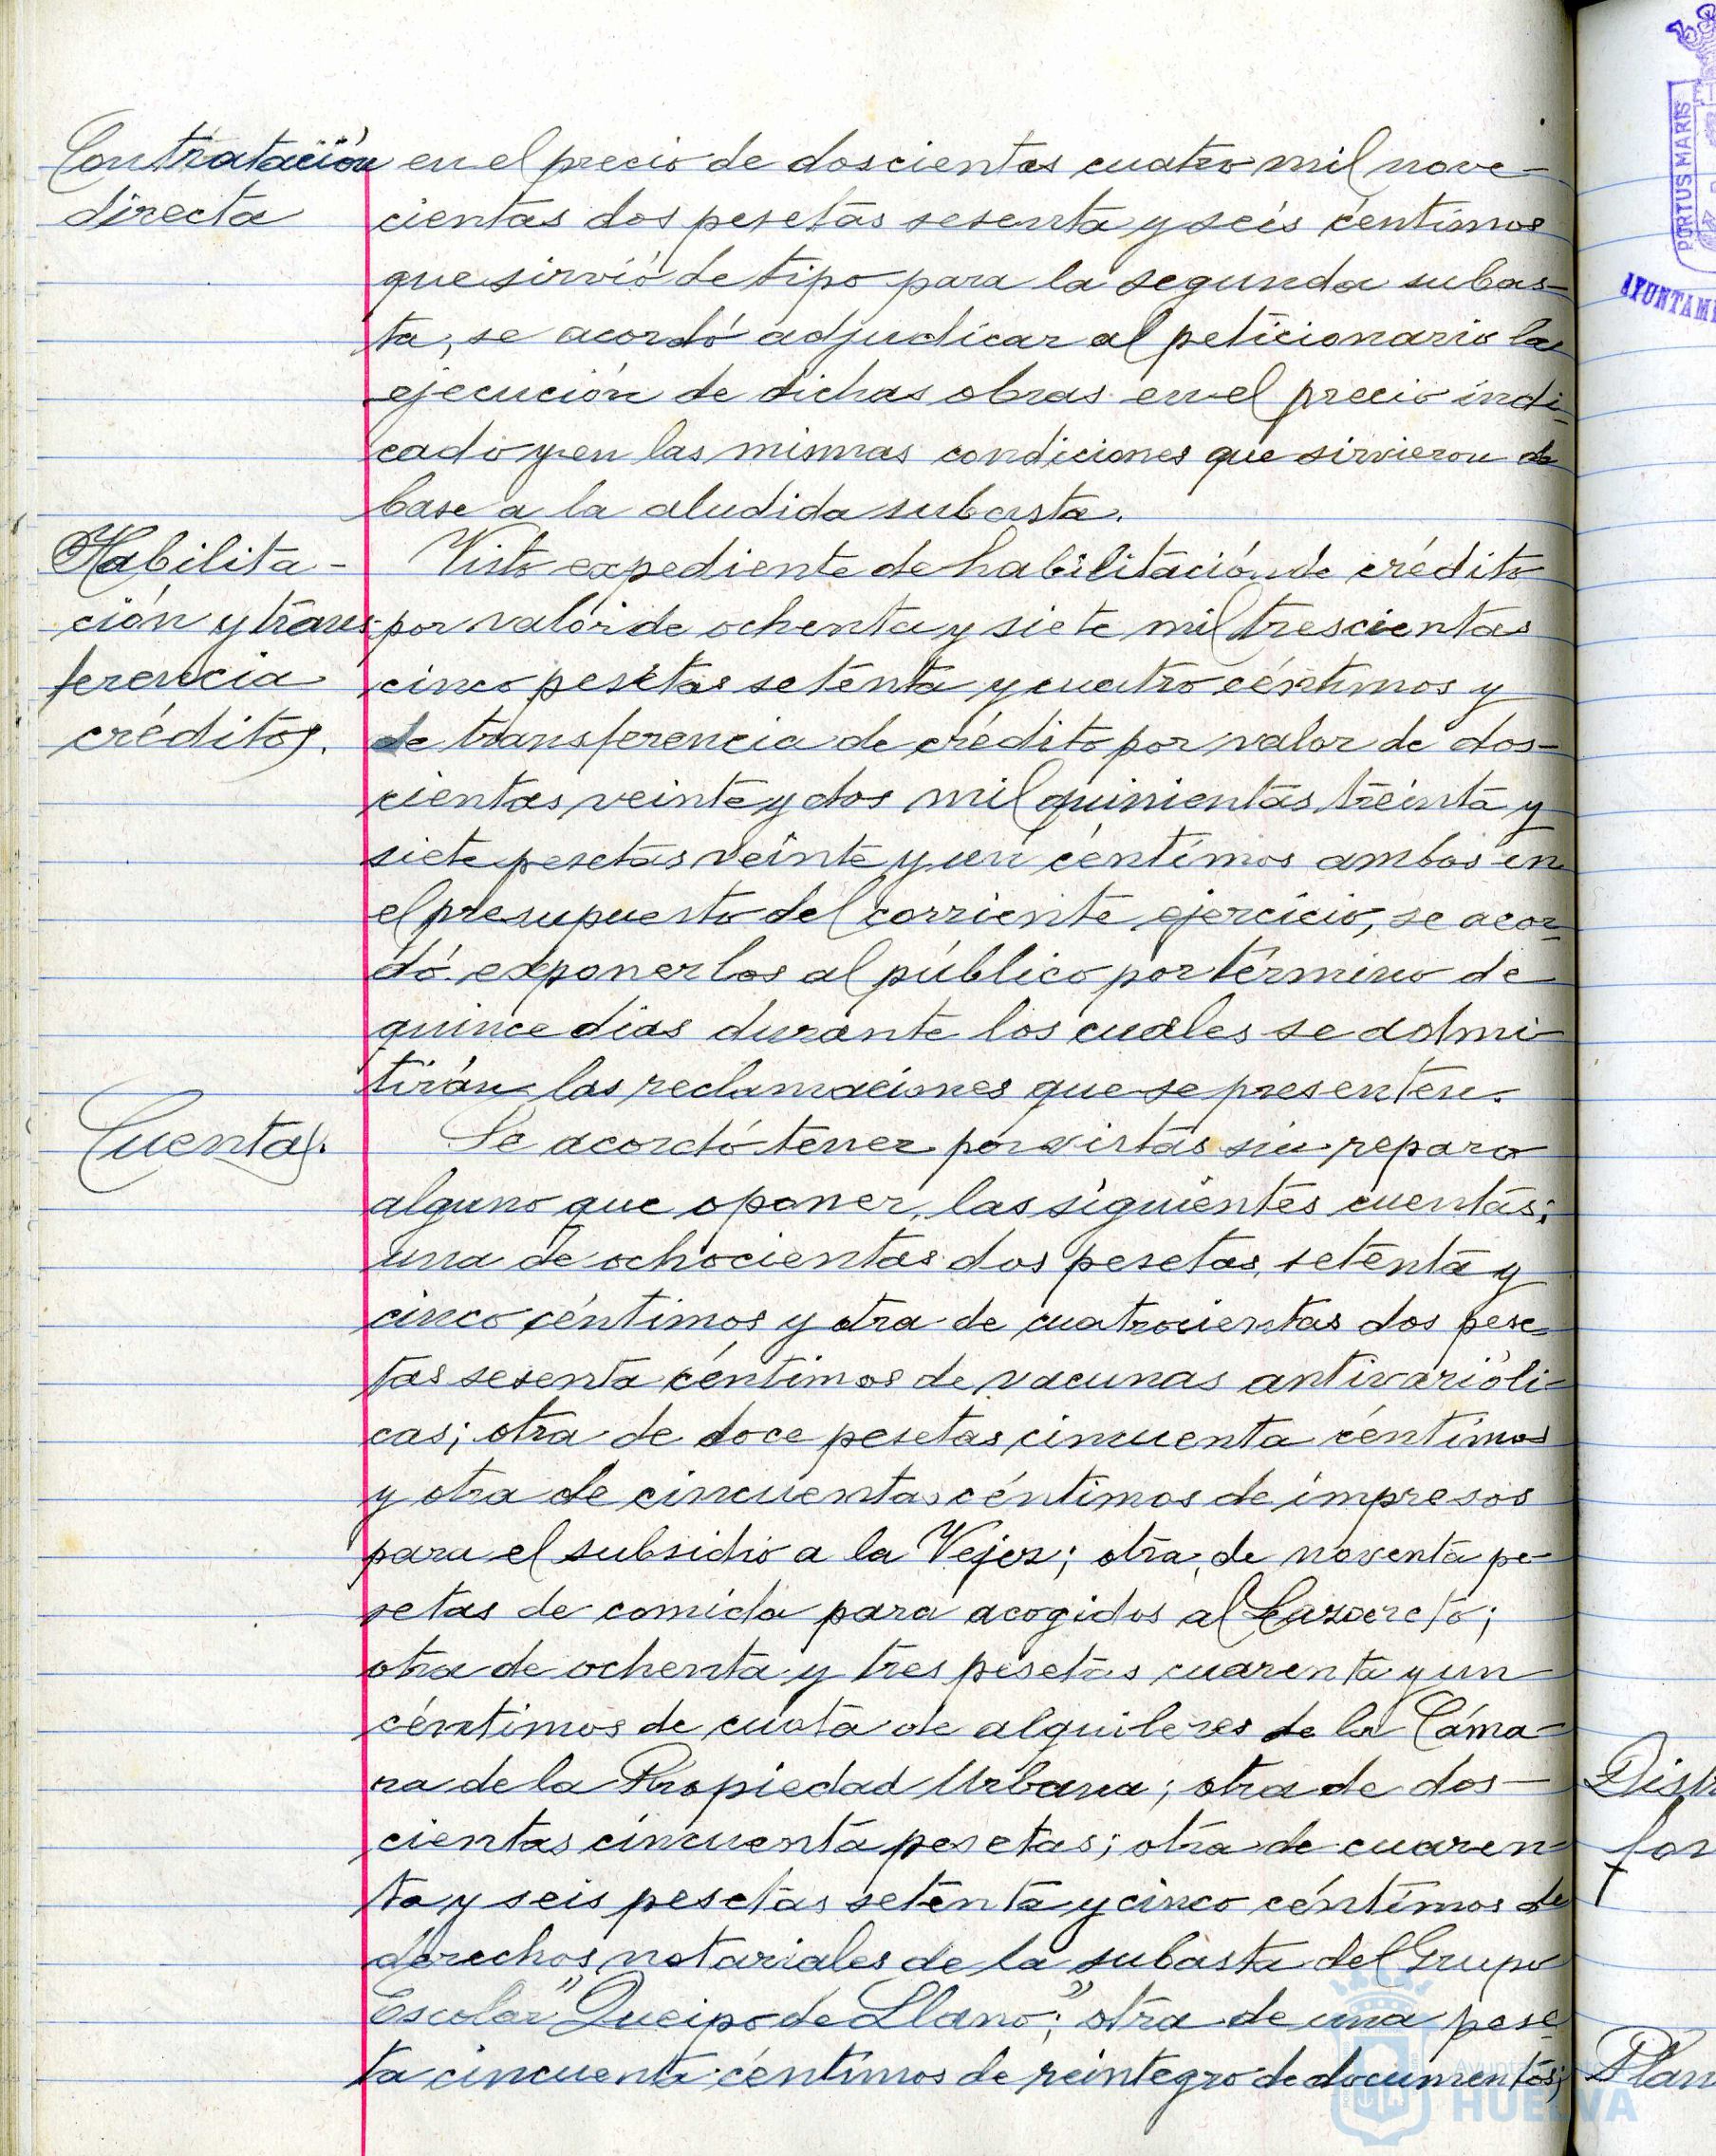 Contratación
directa
en el precio de doscientas cuatro mil nove-
cientas dos pesetas sesenta y seis céntimos
que sirvió de tipo para la segunda subas-
ta, se acordó adjudicar al peticionario la
ejecución de dichas obras en el precio indi-
cado y en las mismas condiciones que sirvieron de
base a la aludida subasta.
Habilita-
ción y trans-
ferencia
créditos.
Visto expediente de habilitación de crédito
por valor de ochenta y siete mil trescientas
cinco pesetas setenta y cuatro céntimos y
de transferencia de crédito por valor de dos-
cientas veinte y dos mil quinientas treinta y
siete pesetas veinte y un céntimos ambos en
el presupuesto del corriente ejercicio, se acor-
dó exponerlos al público por término de
quince dias durante los cuales se admi-
tirán las reclamaciones que se presenten.
Cuentas.
Se acordó tener por vistas sin reparo
alguno que oponer, las siguientes cuentas:
una de ochocientas dos pesetas setenta y
cinco céntimos y otra de cuatrocientas dos pese-
tas sesenta céntimos de vacunas antivarióli-
cas; otra de doce pesetas cincuenta céntimos
y otra de cincuenta céntimos de impresos
para el subsidio a la Vejez; otra de noventa pe-
setas de comida para acogidos al Lazareto;
otra de ochenta y tres pesetas cuarenta y un
céntimos de cuota de alquileres de la Cáma-
ra de la Propiedad Urbana; otra de dos-
cientas cincuenta pesetas; otra de cuaren-
ta y seis pesetas setenta y cinco céntimos de
derechos notariales de la subasta del Grupo
Escolar "Queipo de Llano"; otra de una pese-
ta cincuenta céntimos de reintegro de documentos;
PORTUS MARIS
AYUNTAMI
Distr
for
Plan
Ayuntamiento de
HUELVA